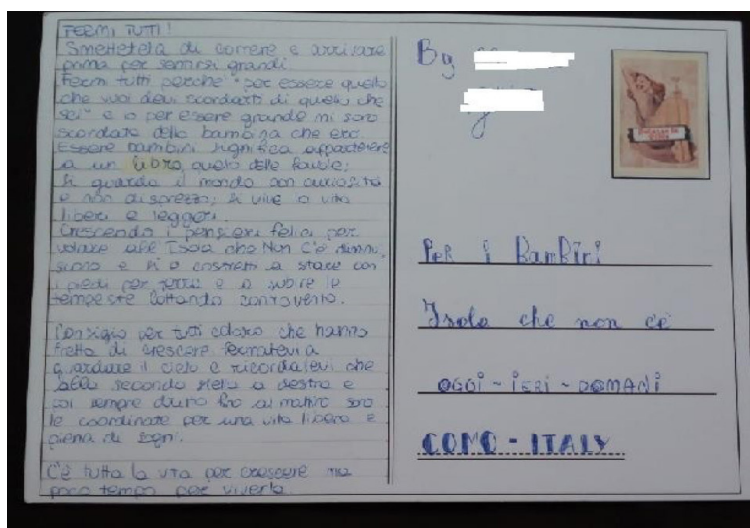 FERMI TUTTI!
Smettetela di correre e arrivare
prima per sentirsi grandi.
Fermi tutti perchè "per essere quello
che vuoi devi scordarti di quello che
sei" e io per essere grande mi sono
scordata della bambina che ero.
Essere bambini significa appartenere
a un libro, quello delle favole;
si guarda il mondo con curiosità
e non disprezzo; si vive a vita
liberi e leggeri.
Crescendo i pensieri felici per
volare all'Isola che Non C'è diminui
scono e si è costretti a stare con
i piedi per terra e a subire le
tempeste lottando controvento.
Consiglio per tutti coloro che hanno
fretta di crescere: fermatevi a
guardare il cielo e ricordatevi che
alla seconda stella a destra e
poi sempre dritto fino al mattino sono
le coordinate per una vita libera e
piena di sogni.
C'è tutta la vita per crescere ma
poco tempo per viverla
By
Per i Bambini
Isola che non c'è
OGGI - IERI - DOMANI
COMO - ITALY